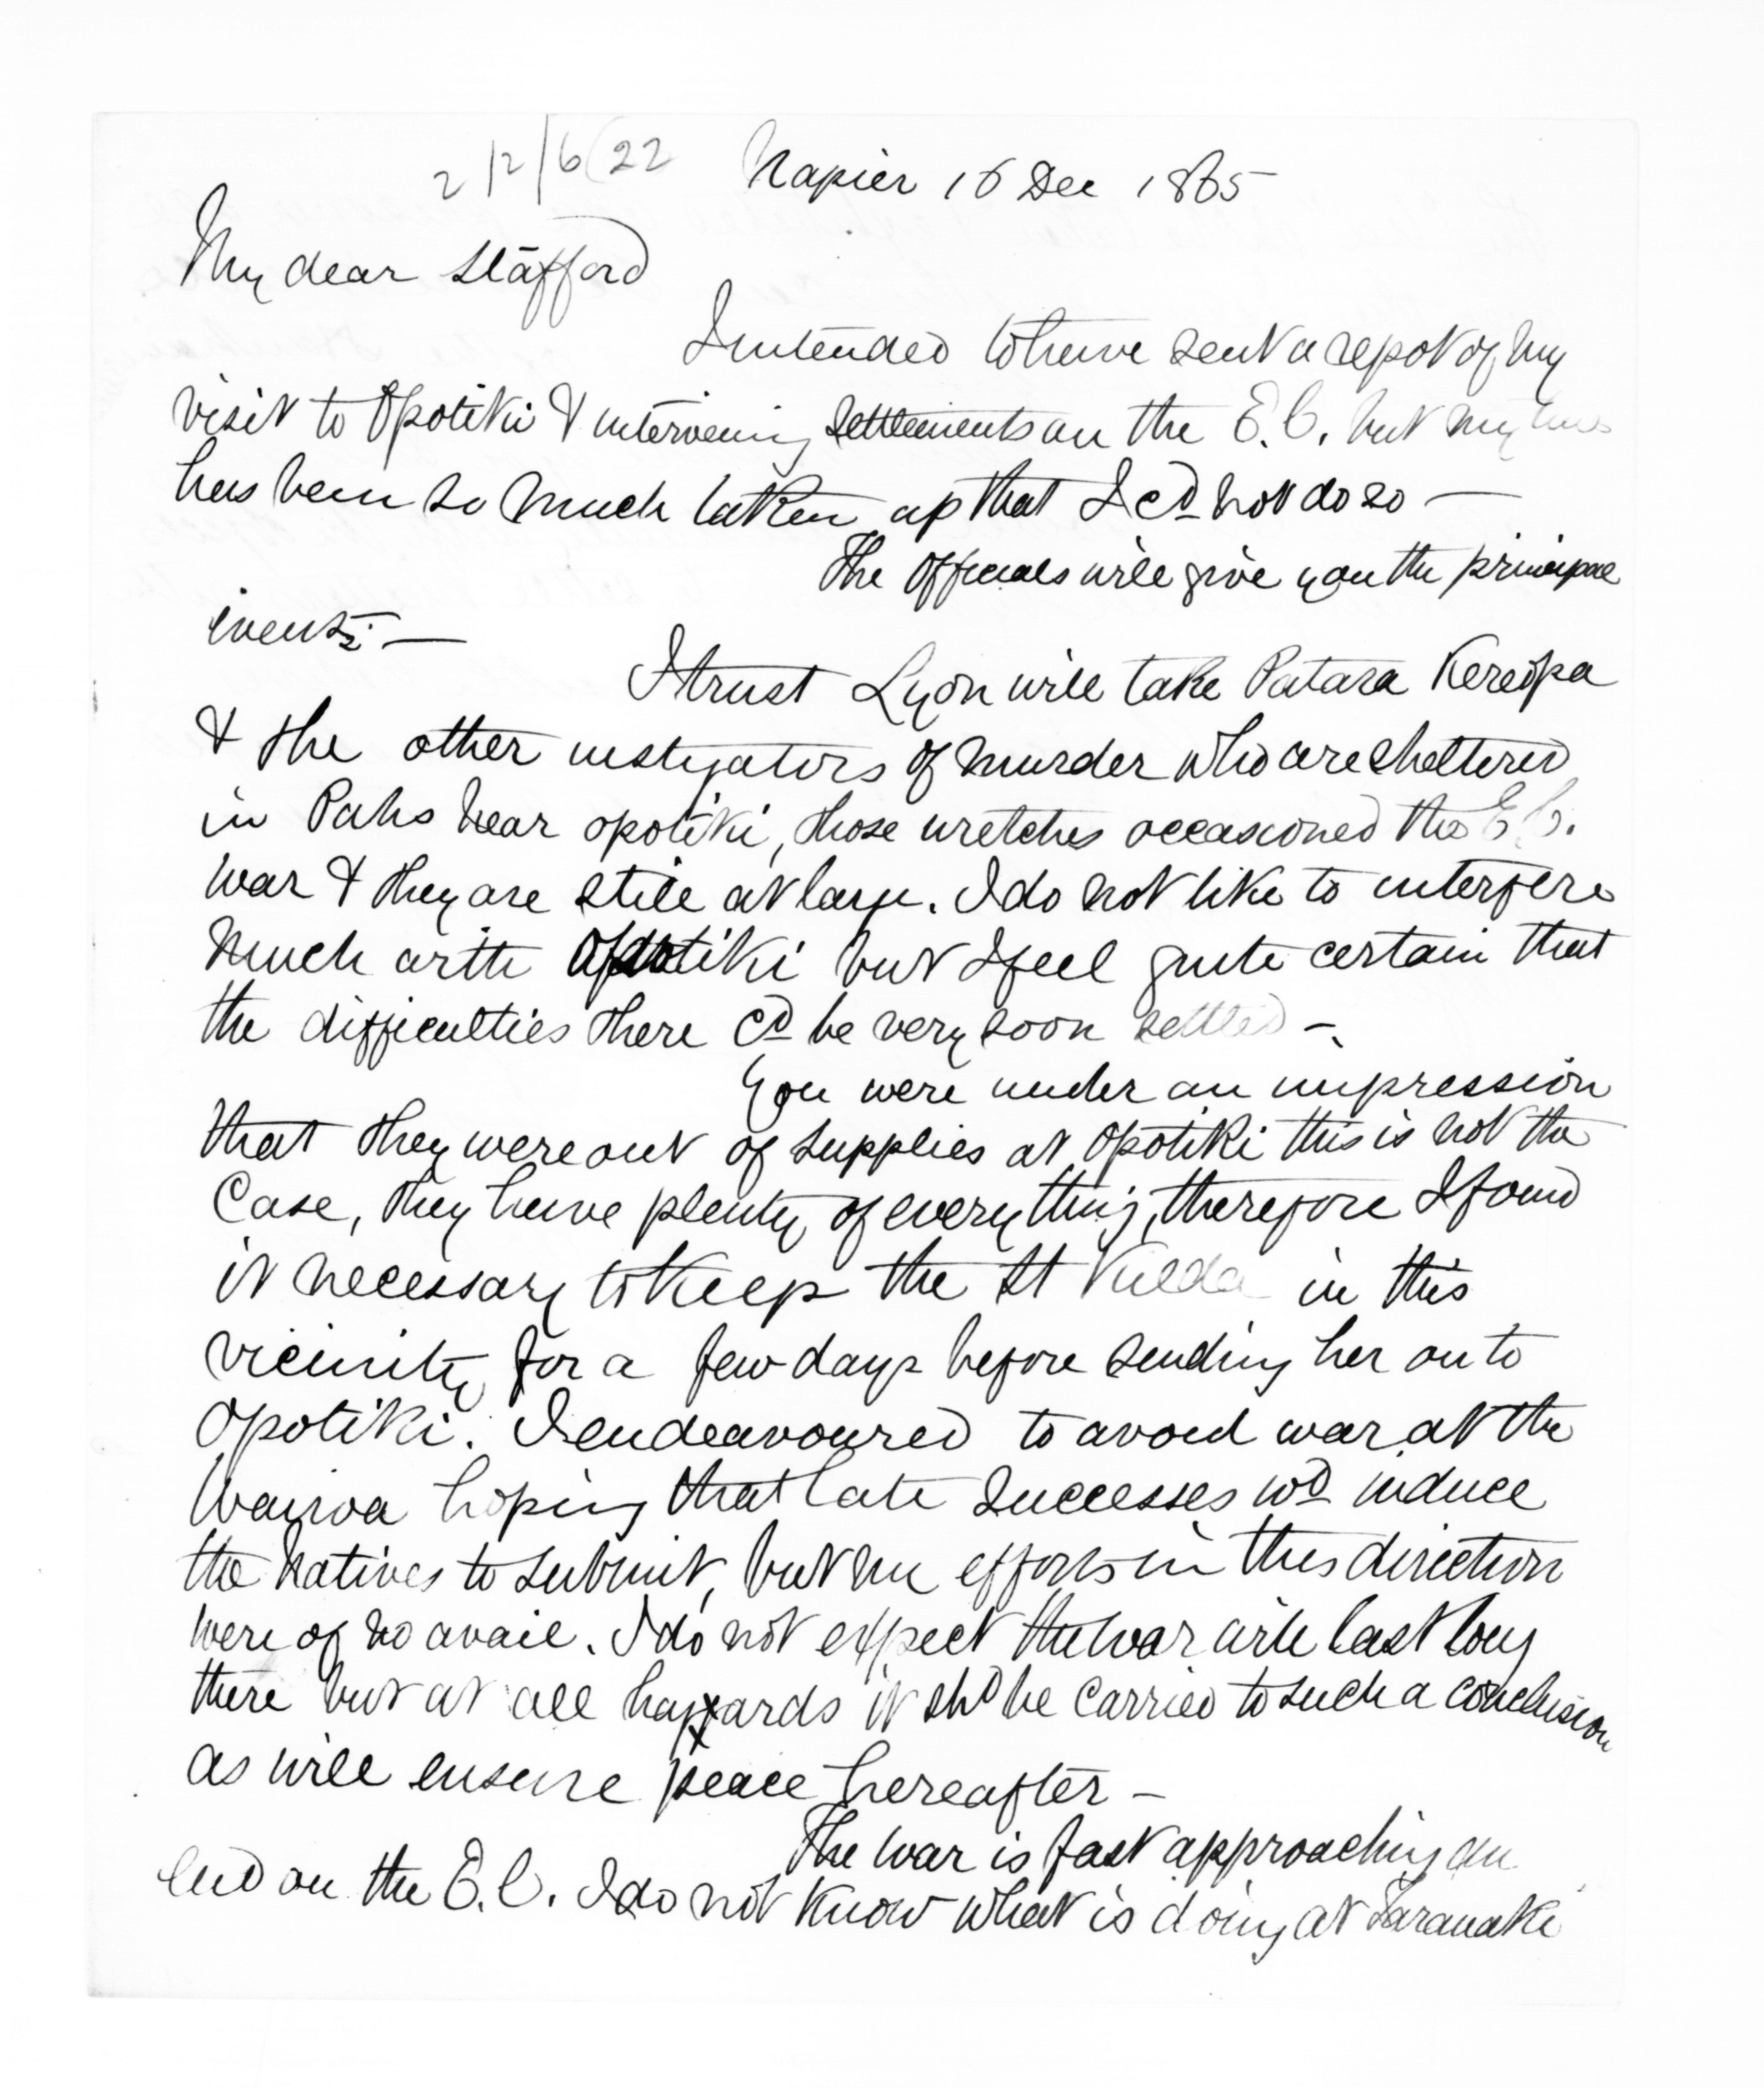 2/2/6(22 Napier 16 Dec 1865
My dear Stafford
I intended to have sent a repot of my
visit to Opotiki & intervening settlements on the E.C. but my time
has been so much taken up that I cd not do so —
The officials will give you the principal
events. —
I trust Lyon will take Patara Kereopa
& the other instigators of murder who are sheltered
in Pahs near opotiki, those wretches occasioned the E C.
war & they are still at large. I do not like to interfere
much with Opotiki but I feel quite certain that
the difficulties there cd be very soon settled —
You were under an impression
that they were out of supplies at Opotiki this is not the
Case, they have plenty of everything, therefore I found
it necessary to keep the St Kilda in this
vicinity for a few days before sending her on to
Opotiki. I endeavoured to avoid war at the
Wairoa hoping that late successes wd induce
the Natives to submit, but my efforts in this direction
were of no avail. I do not expect the war will last long
there but at all hazards it shd be carried to such a conclusion
as will ensure peace hereafter —
The war is fast approaching an
end on the E.C. I do not know what is doing at Taranaki